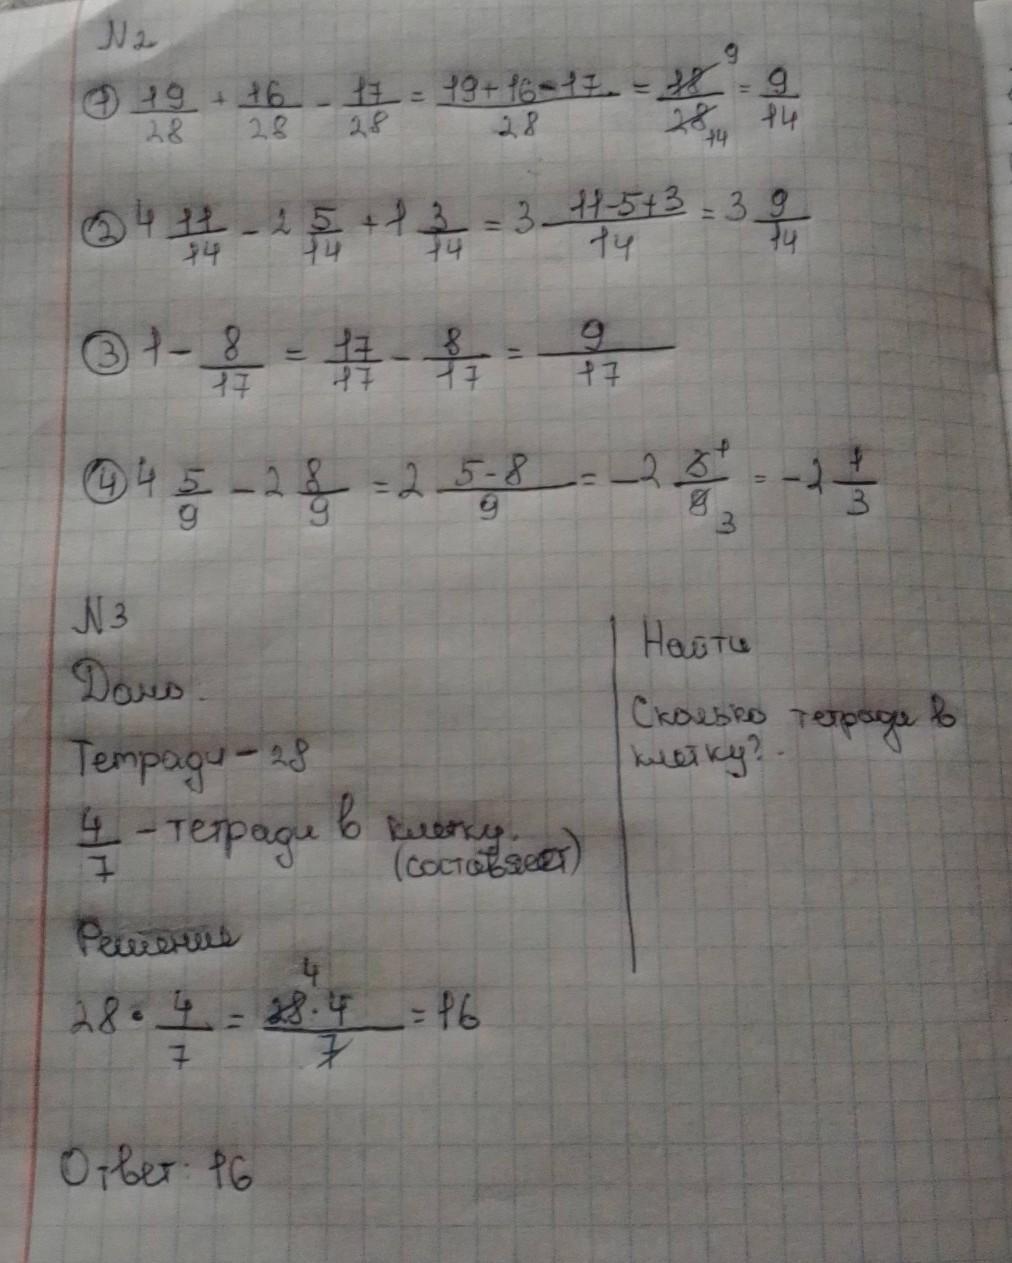 N2
① 19/28 + 16/28 - 17/28 = 19+16-17/28 = 18/28 9 14 = 9/14
② 4 11/14 - 2 5/14 + 1 3/14 = 3 11-5+3/14 = 3 9/14
③ 1 - 8/17 = 17/17 - 8/17 = 9/17
④ 4 5/9 - 2 8/9 = 2 5-8/9 = -2 3/9 1 3 = -2 1/3
N3
Дано.
Тетради - 28
4/7 - тетради в клетку.
(составляет)
Найти
Сколько тетради в
клетку?
Решение
28 · 4/7 = 28·4/7 4 = 16
Ответ: 16